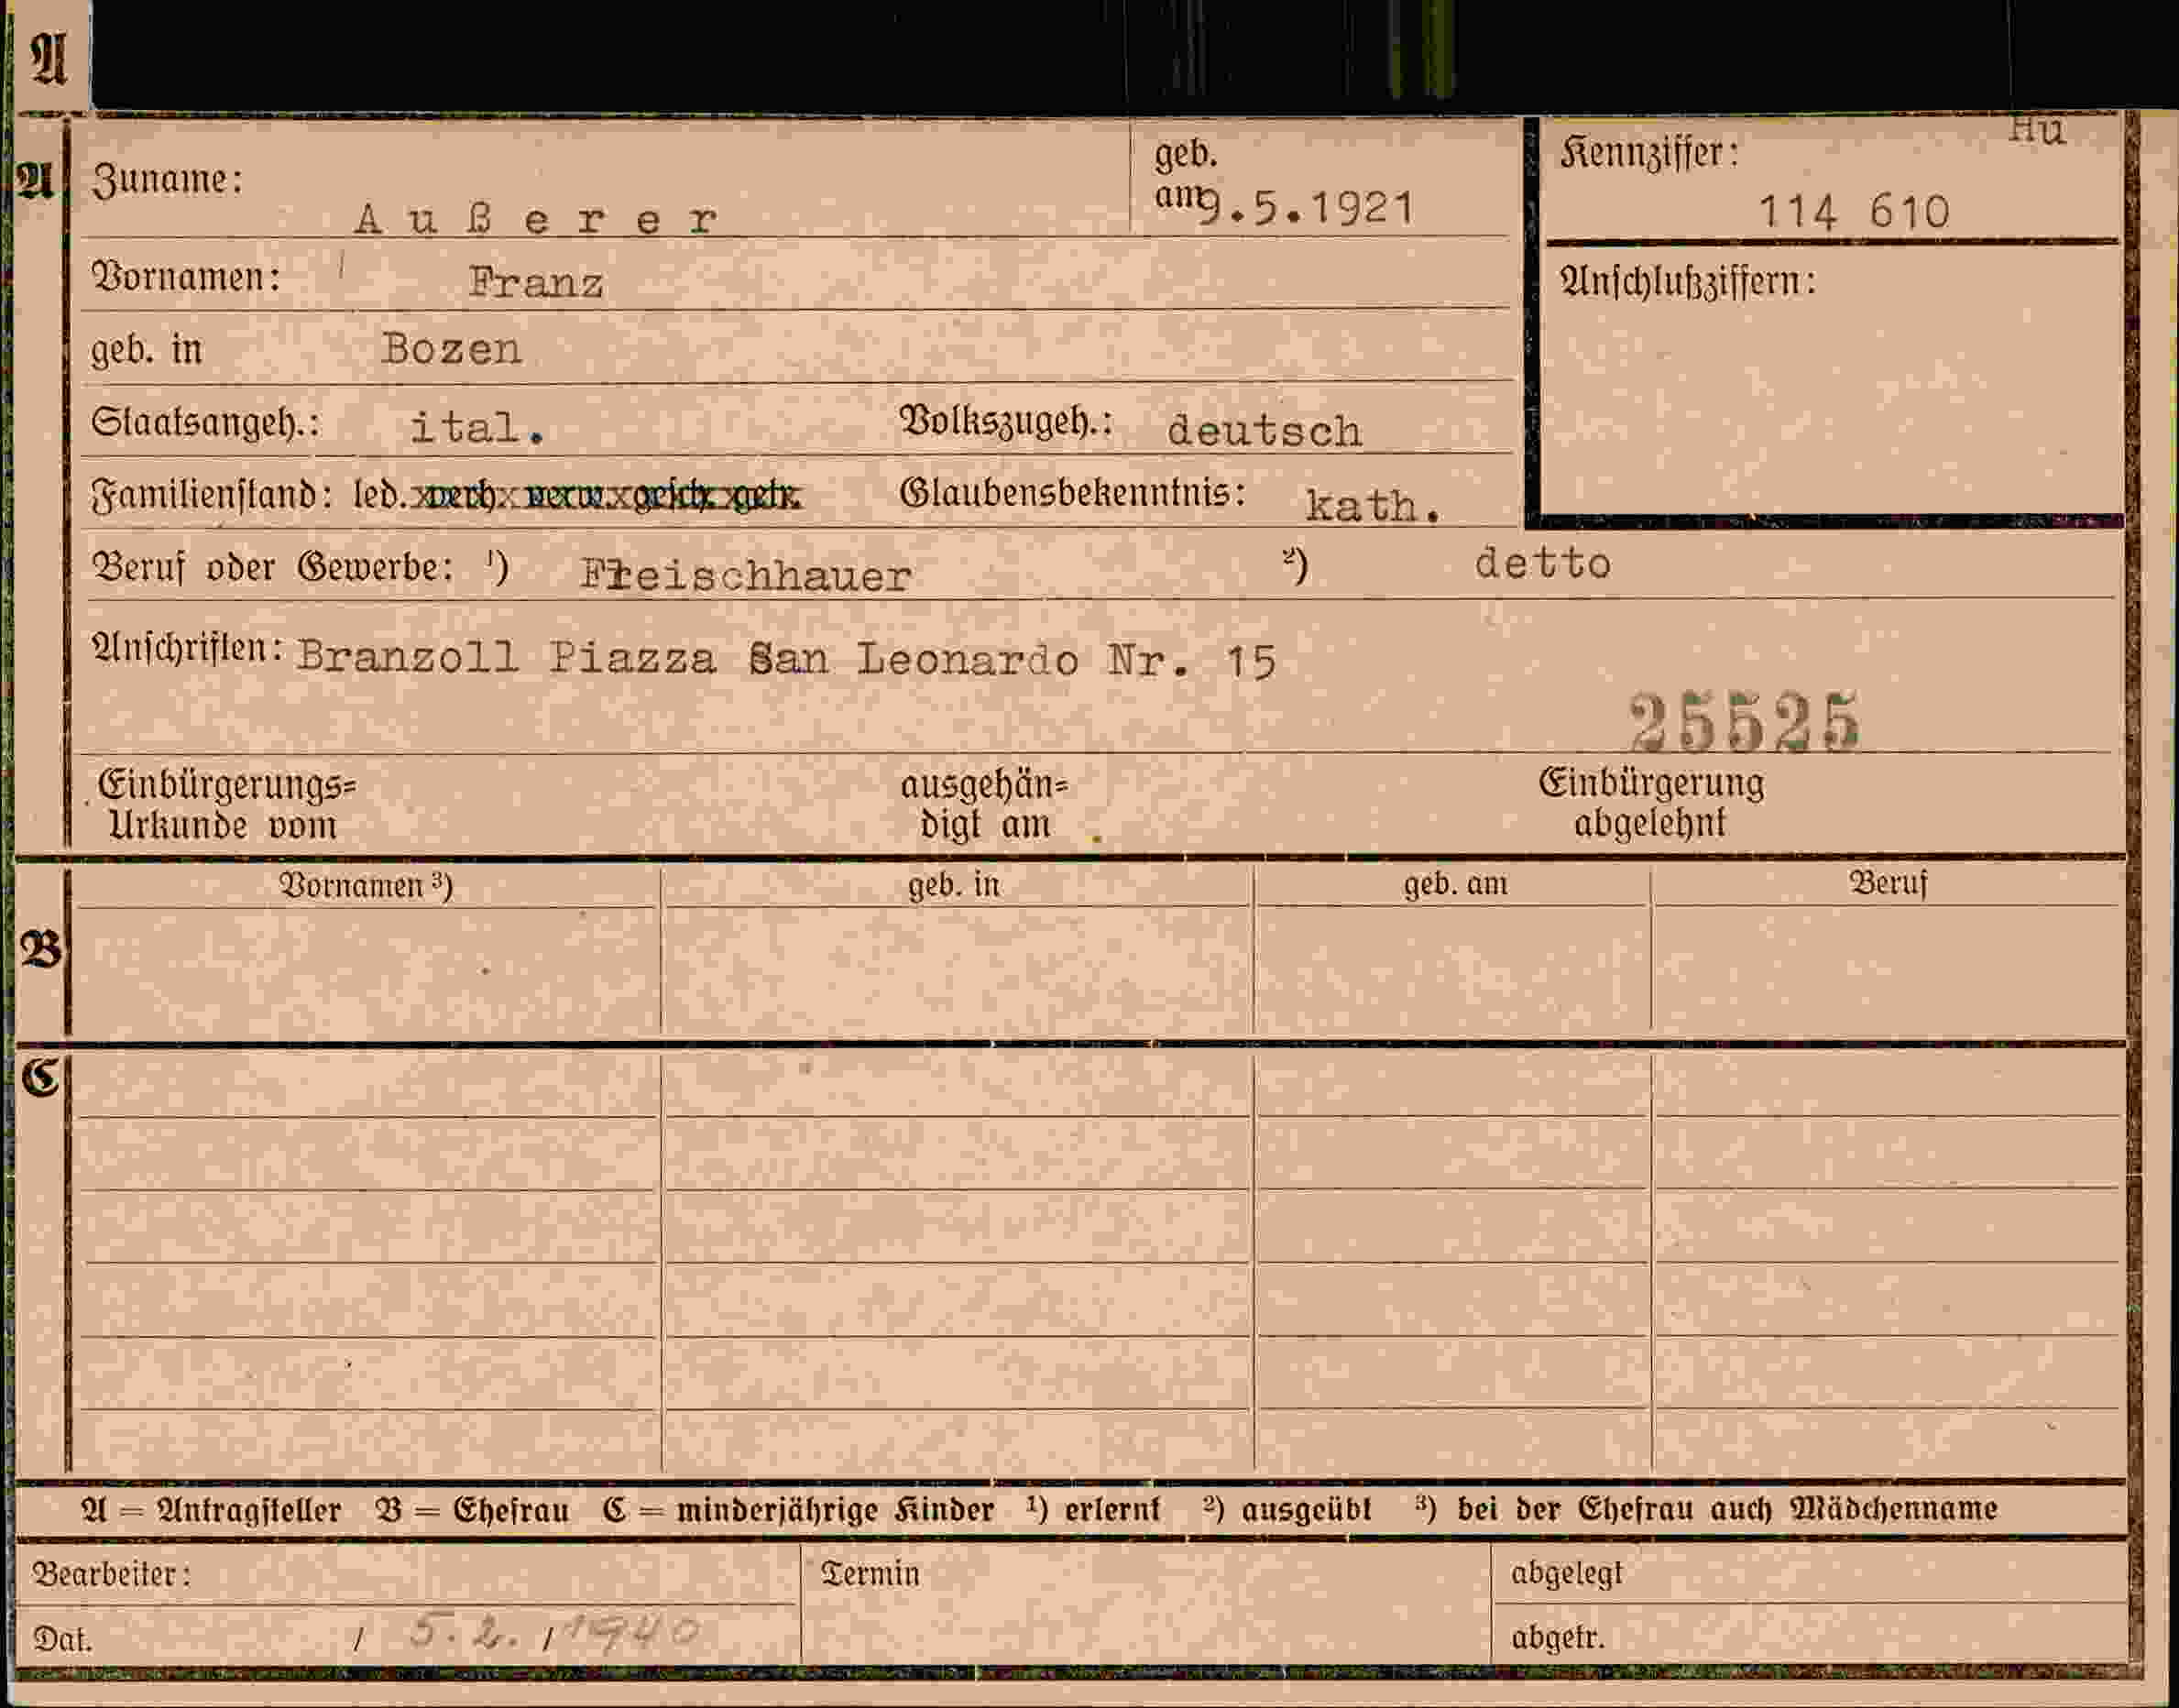 A
Hu
A Zuname: Außerer geb. am 9.5.1921 Kennziffer: 114 610
Vornamen: Franz Anschlußziffern:
geb. in Bozen
Staatsangeh.: ital. Volkszugeh.: deutsch
Familienstand: led. verh. verw. gesch. getr. Glaubensbekenntnis: kath.
Beruf oder Gewerbe: ¹) Fleischhauer ²) detto
Anschriften: Branzoll Piazza San Leonardo Nr. 15
25525
Einbürgerungs= ausgehän= Einbürgerung
Urkunde vom digt am abgelehnt
Vornamen ³) geb. in geb. am Beruf
B
C
A = Antragsteller B = Ehefrau C = minderjährige Kinder ¹) erlernt ²) ausgeübt ³) bei der Ehefrau auch Mädchenname
Bearbeiter: Termin abgelegt
Dat. / 5.2. / 1940 abgetr.